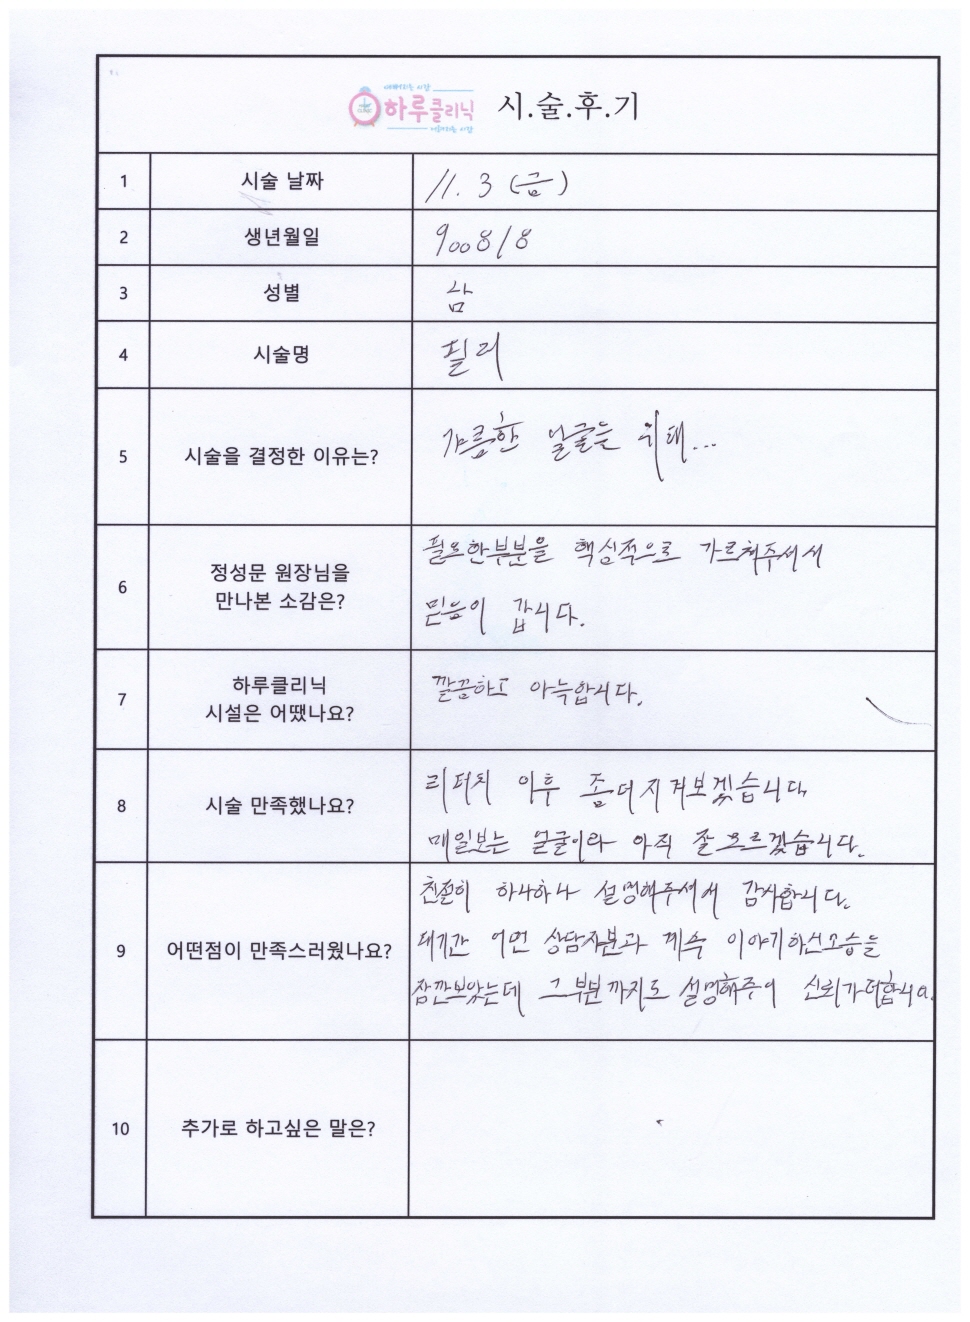 예뻐지는 시간
하루클리닉 시.술.후.기
1 시술 날짜 11. 3 (금)
2 생년월일 900818
3 성별 남
4 시술명 필러
5 시술을 결정한 이유는? 갸름한 얼굴을 위해...
6 정성문 원장님을
만나본 소감은?
필요한부분을 핵심적으로 가르쳐주셔서
믿음이 갑니다.
7 하루클리닉
시설은 어땠나요?
깔끔하고 아늑합니다.
8 시술 만족했나요?
리터치 이후 좀더 지켜보겠습니다
매일보는 얼굴이라 아직 잘 모르겠습니다.
9 어떤점이 만족스러웠나요?
친절히 하나하나 설명해주셔서 감사합니다.
상담자분과 계속 이야기하신
잠깐보았는데 그 부분까지도 설명해주어 신뢰가더합니다.
10 추가로 하고싶은 말은?